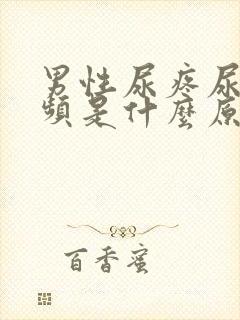 男性尿疼尿
頻是什麼原
百香蜜